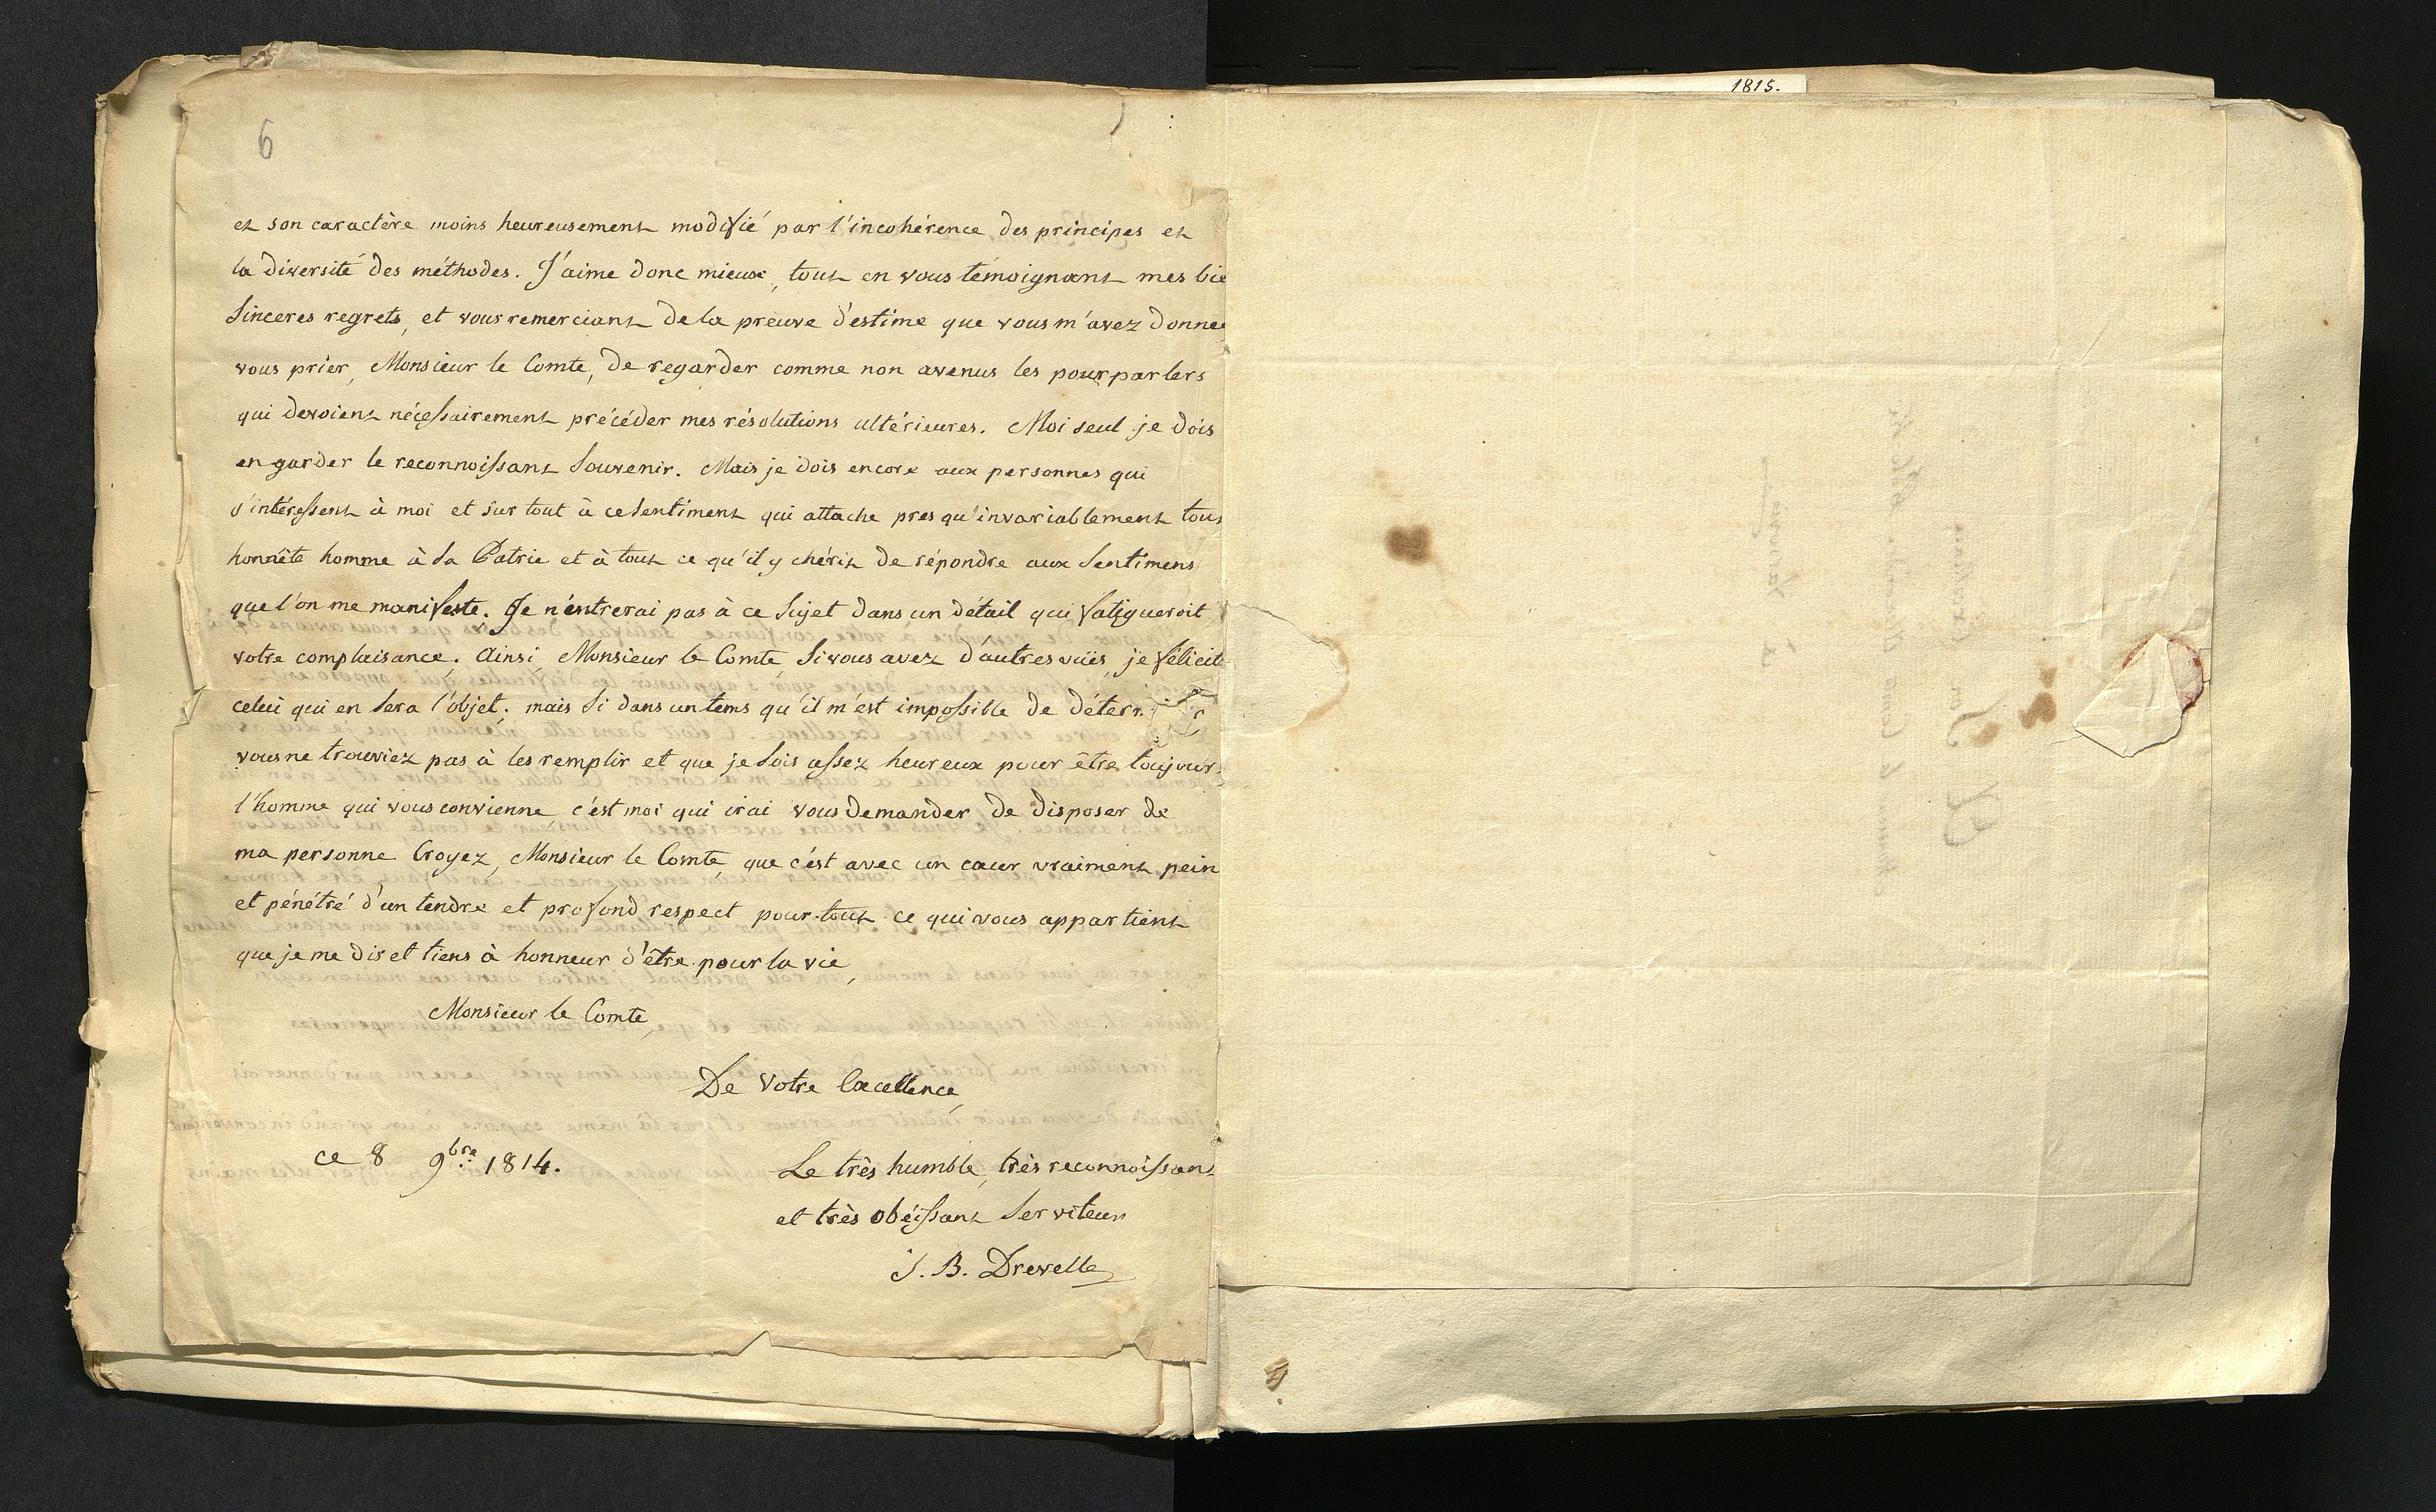 6
1815.
et son caractère moins heureusement modifié par l'incohérence des principes et
la diversité des méthodes. J'aime donc mieux, tout en vous témoignant mes bie
sinceres regrets, et vous remerciant de la preuve d'estime que vous m'avez donnée
vous prier, Monsieur le Comte, de regarder comme non avenus les pourparlers
qui devoient nécessairement précéder mes résolutions ultérieures. Moi seul je dois
en garder le reconnoissant souvenir. Mais je dois encore aux personnes qui
s'intéressent à moi et sur tout à ce sentiment qui attache presqu'invariablement tout
honnête homme à sa Patrie et à tout ce qu'il y chérit de répondre aux sentimens
que l'on me manifeste. Je n'entrerai pas à ce sujet dans un détail qui fatigueroit
votre complaisance. Ainsi, Monsieur le Comte, si vous avez d'autres vües, je félicite
celui qui en sera l'objet; mais si dans un tems qu'il m'est impossible de déter
vous ne trouviez pas à les remplir et que je sois assez heureux pour être toujours
l'homme qui vous convienne, c'est moi qui irai vous demander de disposer de
ma personne Croyez, Monsieur le Comte, que c'est avec un cœur vraiment pein
et pénétré d'un tendre et profond respect pour tout ce qui vous appartient
que je me dis et tiens à honneur d'être pour la vie,
Monsieur le Comte,
De Votre Excellence,
ce 8 9bre 1814.
Le très humble, très reconnoissant
et très obéissant serviteur
J. B. Drevelle